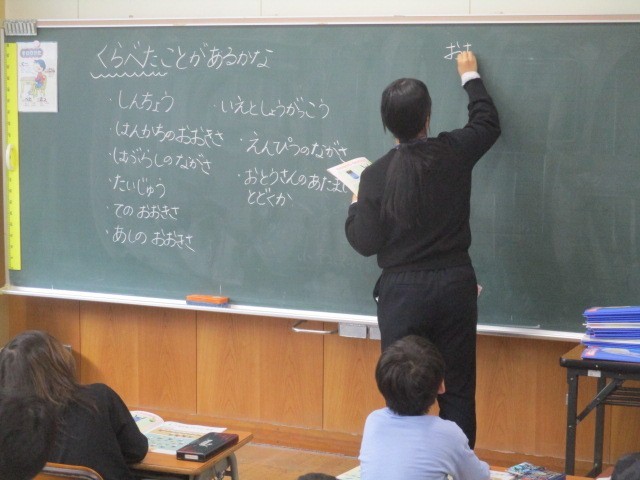 くらべたことがあるかな
・しんちょう
・はんかちのおおきさ
・はぶらしのながさ
・たいじゅう
・ての おおきさ
・あしの おおきさ
・いえとしょうがっこう
・えんぴつのながさ
・おとうさんのあたまに
とどくか
お